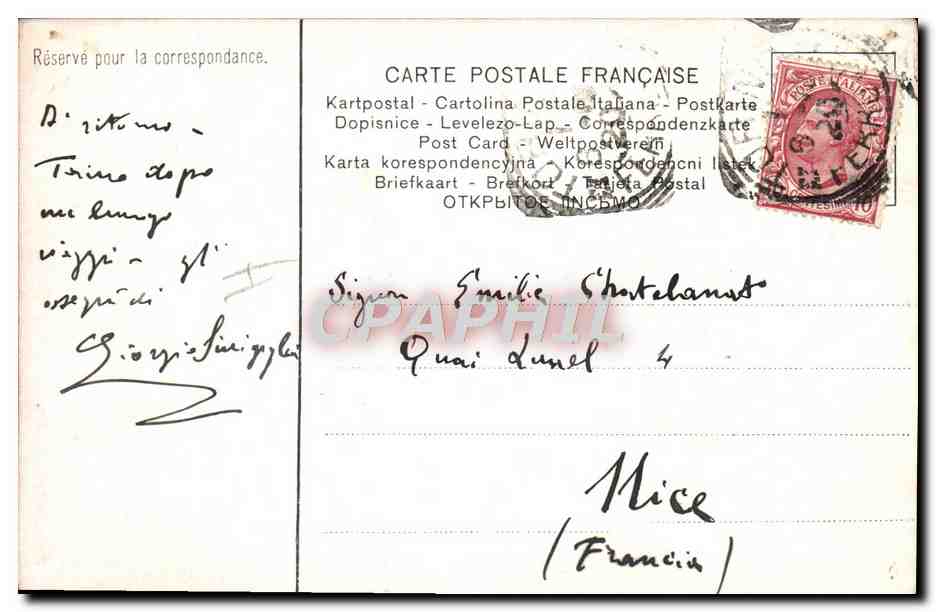 Réservé pour la correspondance.
Di ritorno
Torino dopo
un lungo
viaggio gli
ossequi di
Giorgio
CARTE POSTALE FRANÇAISE
Kartpostal - Cartolina Postale Italiana - Postkarte
Dopisnice - Levelezo-Lap - Correspondenzkarte
Post Card - Weltpostverein
Karta korespondencyjna - Korespondencni listek
Briefkaart - Brefkort - Tarjeta Postal
ОТКРЫТОЕ ПИСЬМО
POSTE ITALIANE
10
FERR
CPAPHIL
Signor Emilio
Quai Lunel 4
Nice
(Francia)